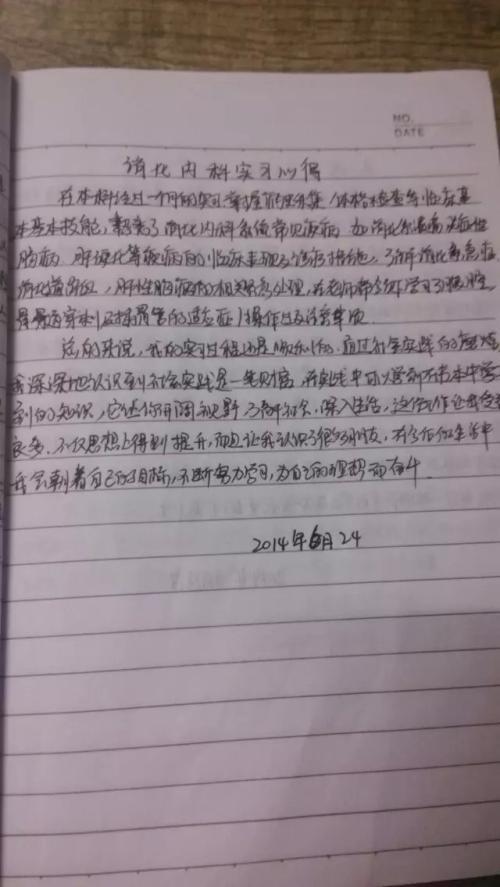 NO.
DATE
消化内科实习心得
在本科经过一个月的实习掌握了病史采集、体格检查等临床基
本基本技能，熟悉了消化内科系统常见疾病 如消化性溃疡 炎症性
肠病 肝硬化等疾病的临床表现及诊疗措施，了解消化系急症
消化道出血，肝性脑病的相关急处理，在老师带领下学习了腹腔
骨髓穿刺以及插胃管的适应症，操作以及注意事项
总的来说，我的实习过程还是顺利的，通过社会实践的磨炼
我深深地认识到社会实践是一笔财富，在实践中可以学到不书本中学
到的知识，它让你开阔视野，了解社会，深入生活，这份工作让我受益
良多，不仅思想上得到提升，而且让我认识了很多朋友，在今后的生活中
我会朝着自己的目标，不断努力学习，为自己的理想而奋斗.
2014年6月24